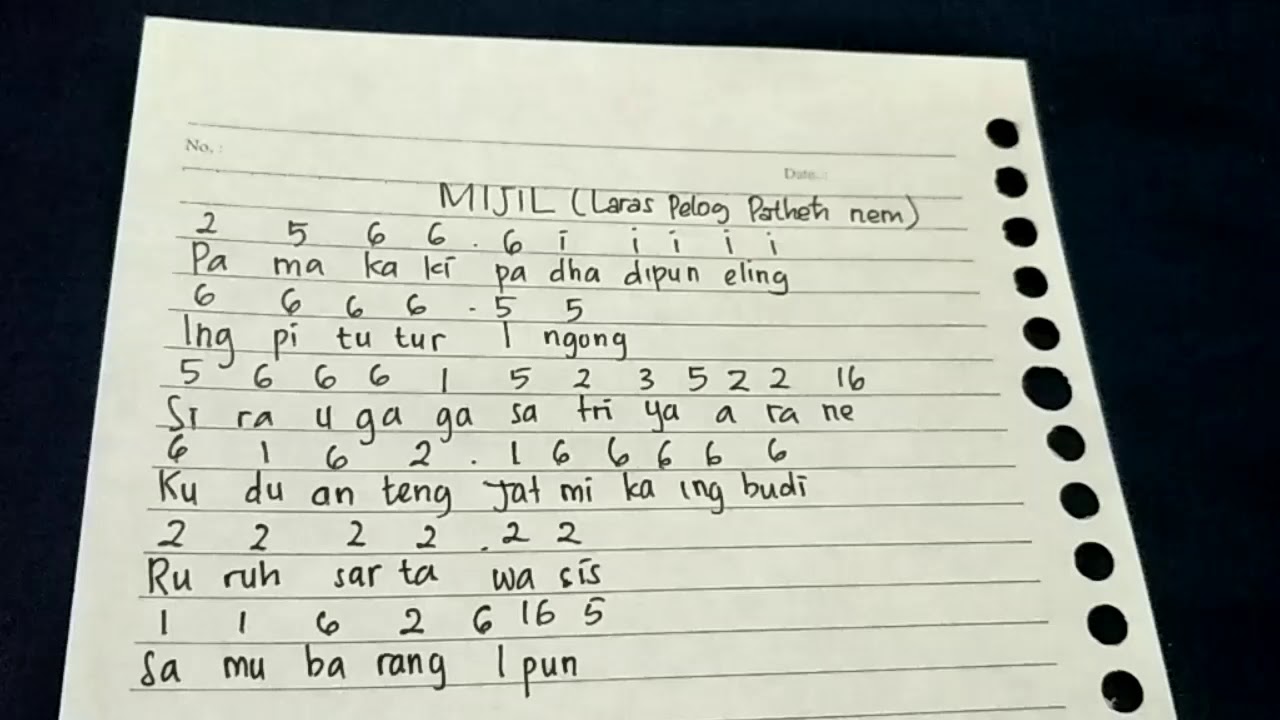 No. :
Date. :
MIJIL (Laras Pelog Patheth nem)
2 5 6 6 . 6 i i i i i
Pa ma ka ki pa dha dipun eling
6 6 6 6 . 5 5
Ing pi tu tur I ngong
5 6 6 6 1 5 2 3 5 2 2 16
Si ra u ga ga sa tri ya a ra ne
6 1 6 2 . 1 6 6 6 6 6
Ku du an teng Jat mi ka ing budi
2 2 2 2 . 2 2
Ru ruh sar ta wa sis
1 1 6 2 6 16 5
Sa mu ba rang I pun